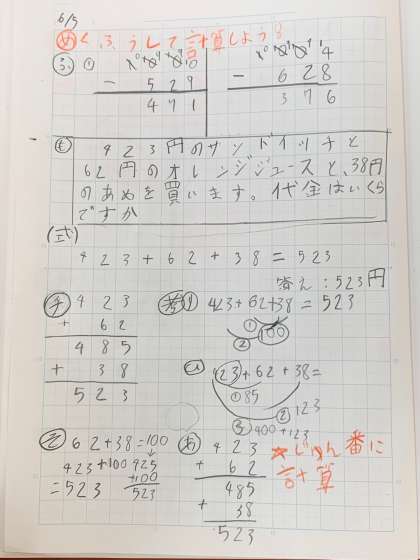 6/5
め くふうして計算しよう
ふ ①
10 9 9 10
- 529
471
10 9 14
- 628
376
も 423円のサンドイッチと
62円のオレンジジュースと、38円
のあめを買います。代金はいくら
ですか
(式)
423+62+38=523
答え:523円
チ 423
+ 62
485
+ 38
523
考 423+62+38=523
① 100
②
423+62+38=
① 85
② 123
③ 400+123
そ 62+38=100
423+100
=523
+100
523
あ 423
+ 62
485
+ 38
523
★じゅん番に
計算